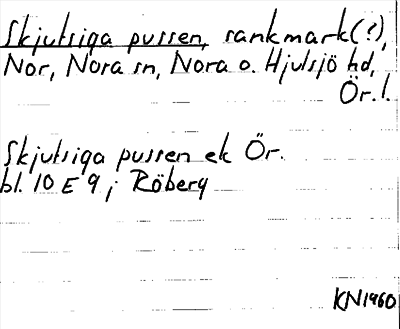 Skjutsiga pussen, sankmark(?),
Nor, Nora sn, Nora o. Hjulsjö hd,
Ör. l.
Skjutsiga pussen ek Ör.
bl. 10 E 9 j Röberg
KN1960